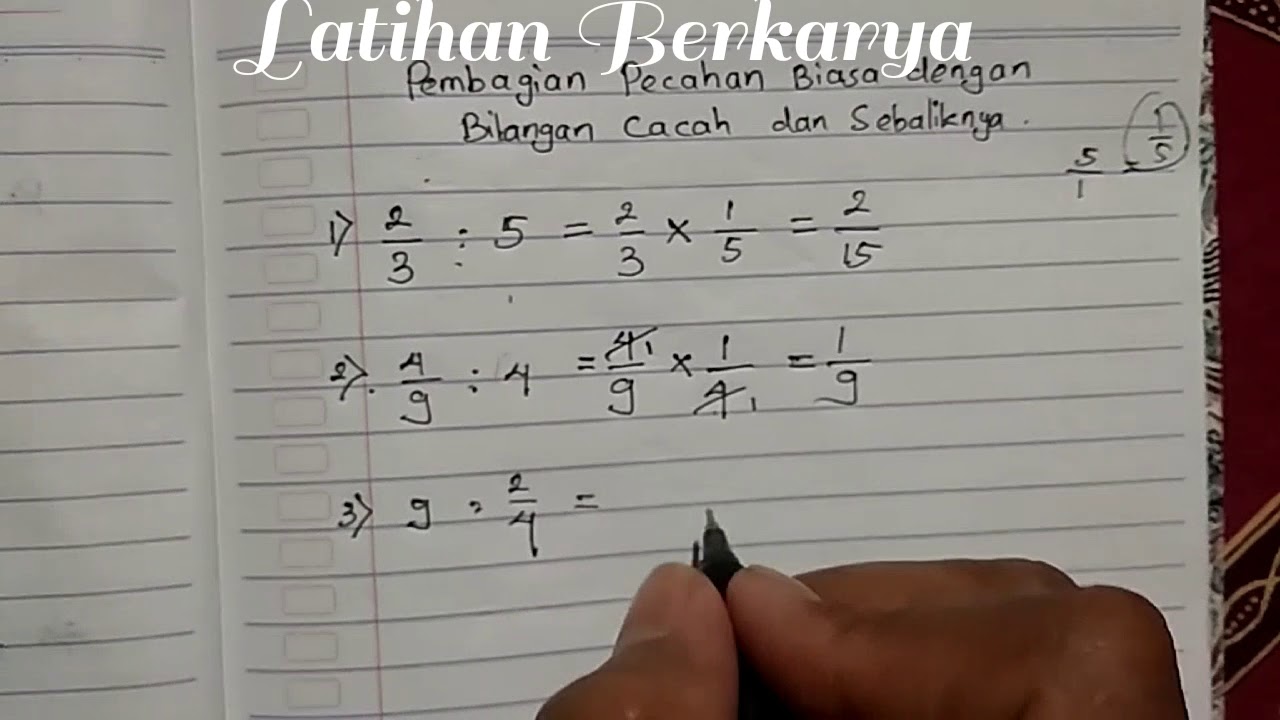 Latihan Berkarya
Pembagian Pecahan Biasa dengan
Bilangan Cacah dan Sebaliknya.
5/1 1/5
1) 2/3 : 5 = 2/3 × 1/5 = 2/15
2) 4/9 : 4 = 4 1/9 × 1/4 1 = 1/9
3) 9 : 2/4 =